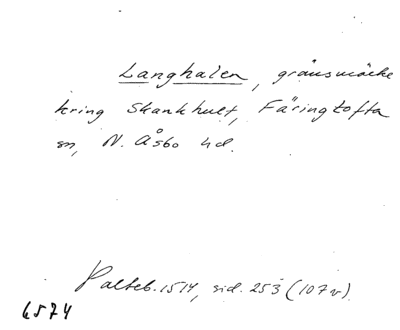 Langhalen, gränsmärke
kring Skankhult, Färingtofta
sn, N. Åsbo hd.
Palteb. 1514, sid. 253 (107v)
6574